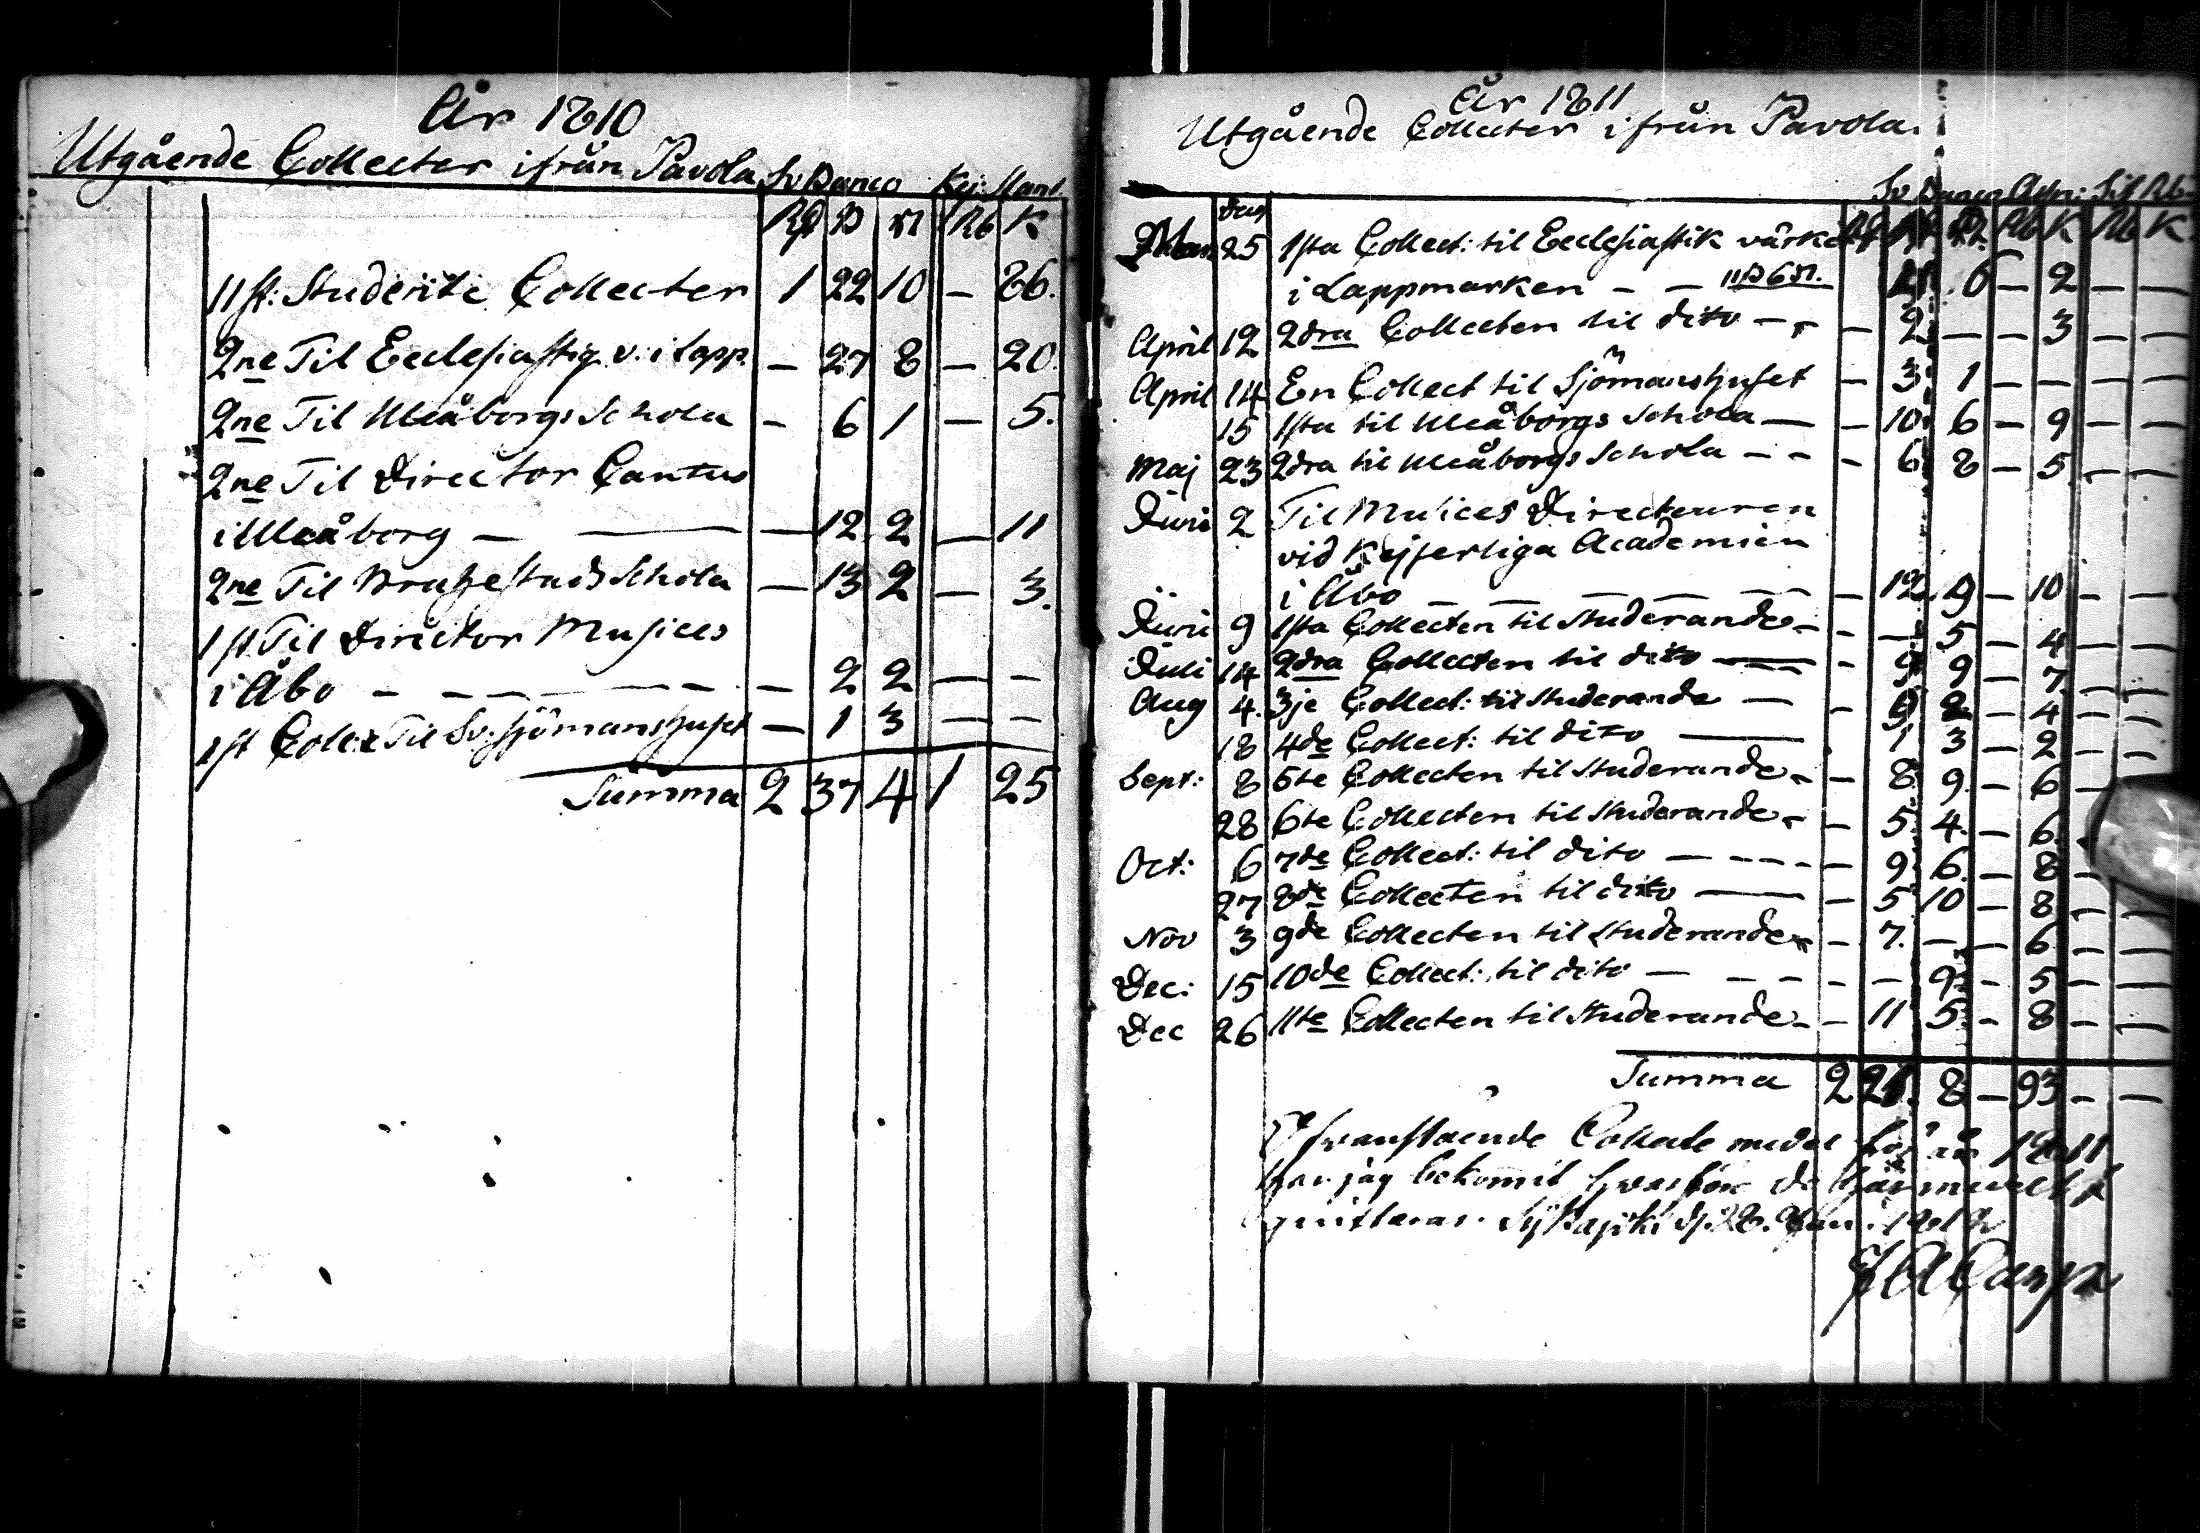 År 1810
Utgående Collecter ifrån Pavola Sv Banco Kej: Mant.
Rd ß rst Rb K
11 st: Studente Collecter 1 22 10 — 86.
2ne Til Ecclesiastiq v. i Lapp. — 27 8 — 20.
2ne Til Uleåborgs Schola — 6 1 — 5.
2ne Til Director Cantus
i Uleåborg — — 12 2 — 11
2ne Til Brahestads Schola — 13 2 — 3.
1 st Til Director Musices
i Åbo — — — — — — 2 2 — —
1 st Coll: Til Sv: Sjömanshuset — 1 3 — —
Summa 2 37 4 1 25
År 1811
Utgående Collecter ifrån Pavola.
Sv Banco Assn: Silf Rb
Dag Rb K Rb K
25 1sta Collect: til Ecclesiastik värket
i Lappmarken — — 11 ß 6 rst. 6 — 2 — —
April 12 2dra Collecten til dito — — — 2 — — 3 — —
April 14 En Collect til Sjömanshuset — 3 1 — — — —
15 1sta til Uleåborgs Schola — — 10 6 — 9 — —
Maj 23 2dra til Uleåborgs Schola — — — 6 8 — 5 — —
Juni 2 Til Musices Directeuren
vid Kejserliga Academien
i Åbo — — — — — — 12 9 — 10 — —
Juni 9 1sta Collecten til Studerande — — — 5 — 4 — —
Juli 14 2dra Collecten til dito — — 9 9 — 7 — —
Aug 4. 3je Collect: til Studerande — — 2 — 4 — —
18 4de Collect: til dito — 1 3 — 2 — —
Sept: 8 5te Collecten til Studerande — — 8 9 — 6 —
28 6te Collecten til Studerande — — 5 4 — 6.
Oct: 6 7de Collect: til dito — — — — — 9 6 — 8
27 8de Collecten til dito — — 5 10 — 8 — —
Nov 3 9de Collecten til Studerande — — 7. — — 6 — —
Dec: 15 10de Collect: til dito — — — — — — 9 — 5 — —
Dec 26 11te Collecten til Studerande — — 11 5 — 8 — —
Summa 2 21 8 — 93 — —
Ofvanstående Collecte medel för år 1811
har jag bekommit hvarföre de härmedelst
quitteras. Siikajoki d. 28. Jan: 1812